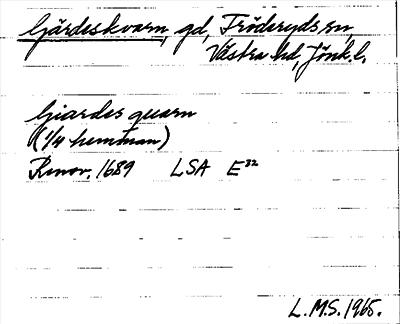 Gjärdeskvarn, gd, Fröderyds sn,
Västra hd, Jönk.l.
Giardes quarn
(1/4 hemman)
Renov. 1689 LSA E32
L.M.S. 1965.